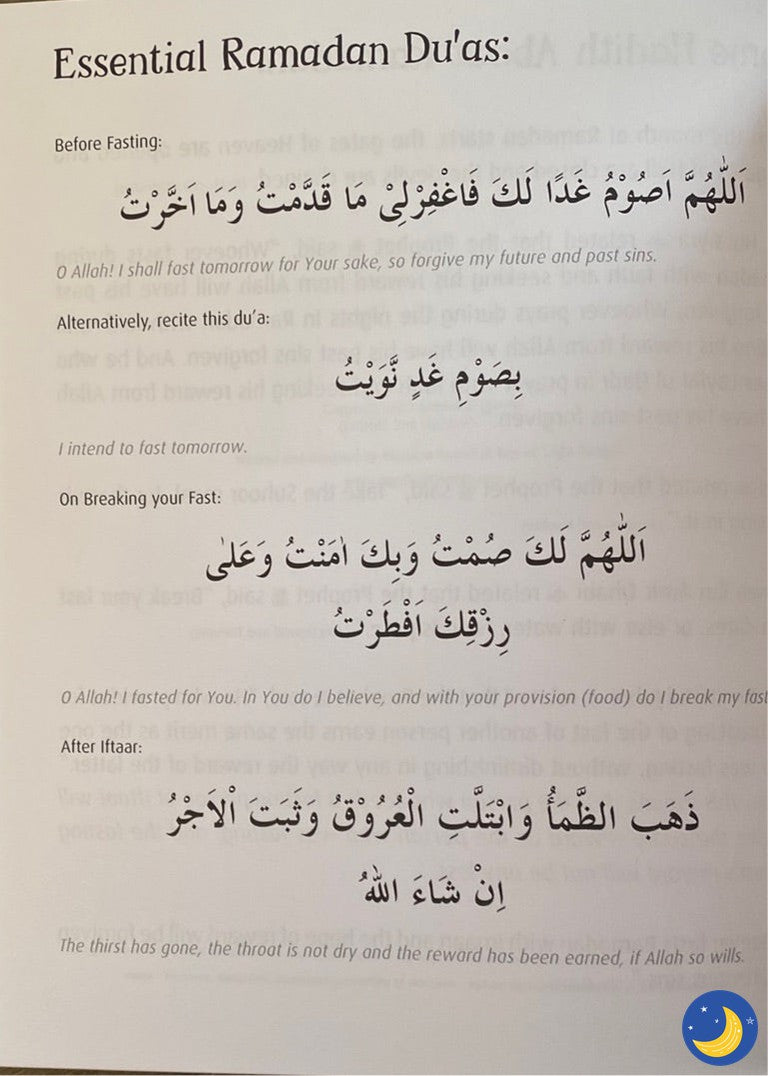 Essential Ramadan Du'as:
Before Fasting:
اَللّٰهُمَّ اَصُوْمُ غَدًا لَكَ فَاغْفِرْلِىْ مَا قَدَّمْتُ وَمَا اَخَّرْتُ
O Allah! I shall fast tomorrow for Your sake, so forgive my future and past sins.
Alternatively, recite this du'a:
بِصَوْمِ غَدٍ نَّوَيْتُ
I intend to fast tomorrow.
On Breaking your Fast:
اَللّٰهُمَّ لَكَ صُمْتُ وَبِكَ اٰمَنْتُ وَعَلٰى
رِزْقِكَ اَفْطَرْتُ
O Allah! I fasted for You. In You do I believe, and with your provision (food) do I break my fast
After Iftaar:
ذَهَبَ الظَّمَأُ وَابْتَلَّتِ الْعُرُوْقُ وَثَبَتَ الْاَجْرُ
اِنْ شَاءَ اللّٰهُ
The thirst has gone, the throat is not dry and the reward has been earned, if Allah so wills.